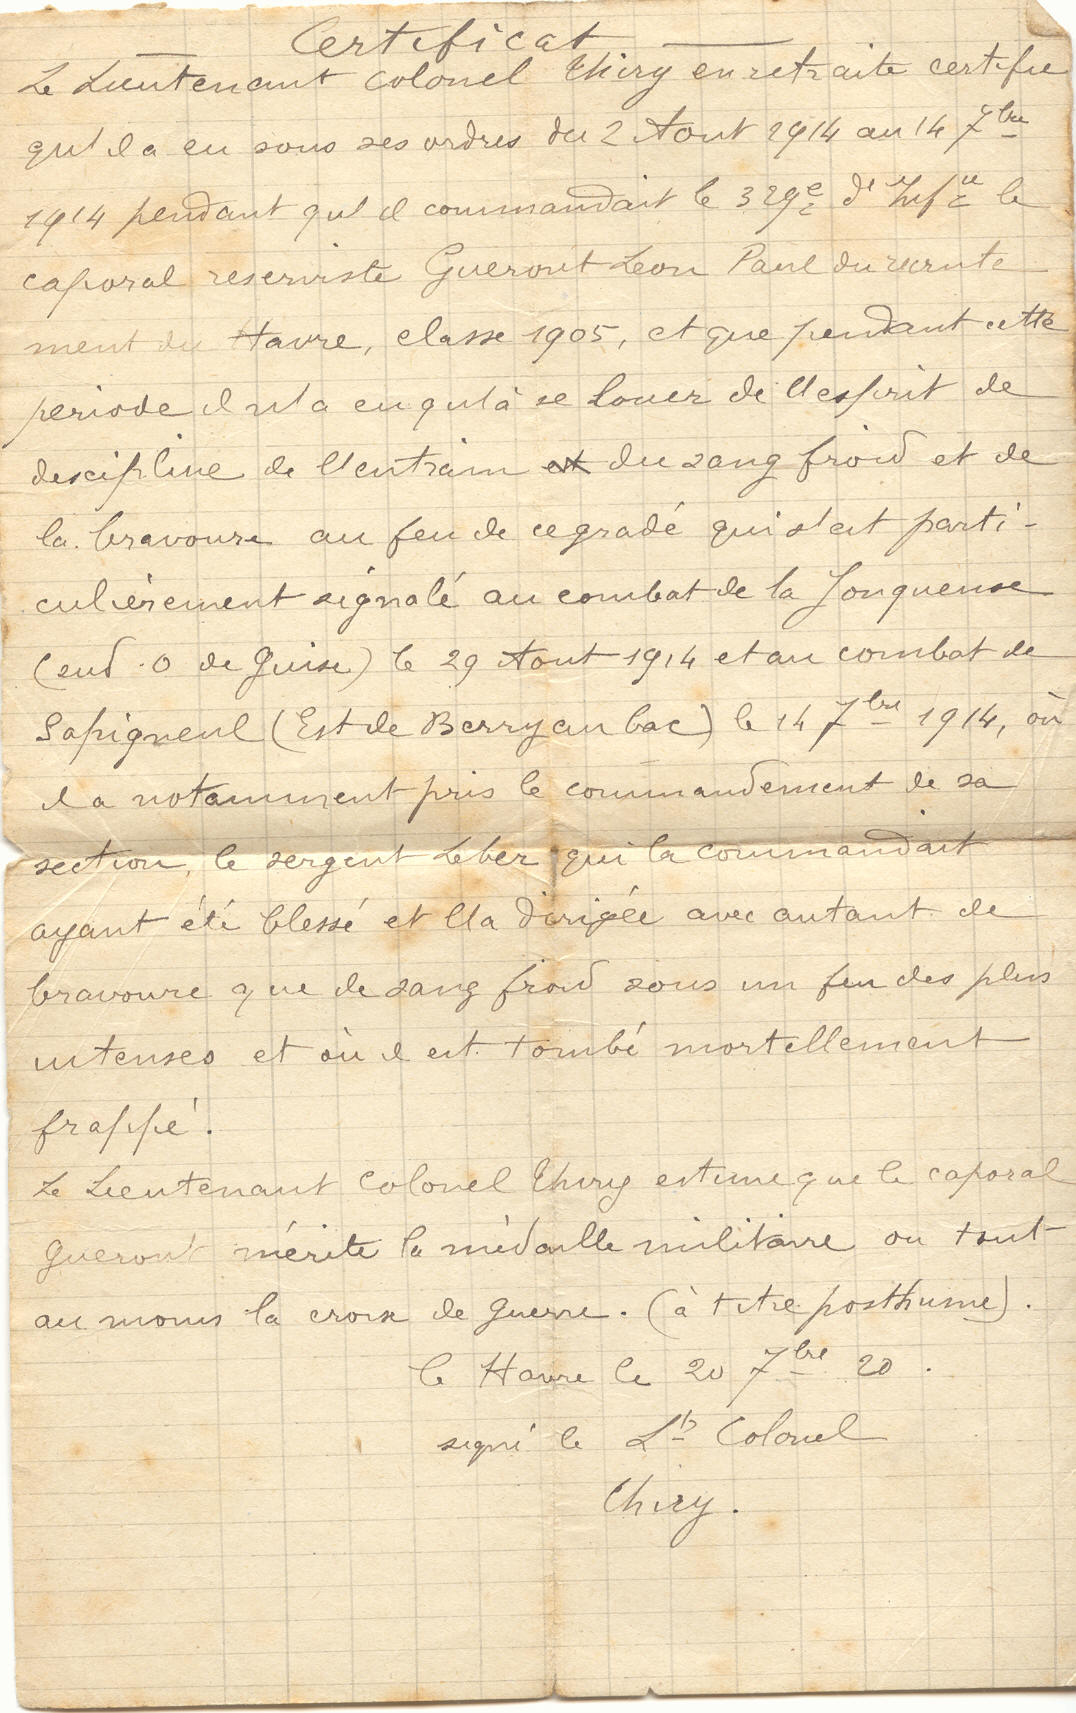 Certificat
Le Lieutenant Colonel Thiry en retraite certifie
qu'il a eu sous ses ordres du 2 Aout 1914 au 14 7bre
1914 pendant qu'il commandait le 329e d'Infie le
caporal reserviste Gueront Leon Paul du recrute
ment du Havre, classe 1905, et que pendant cette
periode il n'a eu qu'à se louer de l'esprit de
descipline de l'entrain et du sang froid et de
la bravoure au feu de ce gradé qui s'est parti-
culièrement signalé au combat de la Jonqueuse
(sud-O de Guise) le 29 Aout 1914 et au combat de
Sapigneul (Est de Berry au bac) le 14 7bre 1914, où
il a notamment pris le commandement de sa
section, le sergent Leber qui la commandait
ayant été blessé et l'a dirigée avec autant de
bravoure que de sang froid sous un feu des plus
intenses et où il est tombé mortellement
frappé.
Le Lieutenant Colonel Thiry estime que le caporal
Gueront mérite la médaille militaire ou tout
au moins la croix de guerre. (à titre posthume).
le Havre le 20 7bre 20.
signé le Lt Colonel
Thiry.